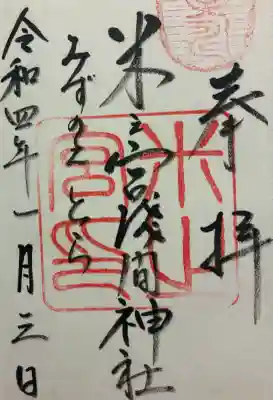 奉拝
米之宮淺間神社
みずのえとら
令和四年一月三日
米之宮印